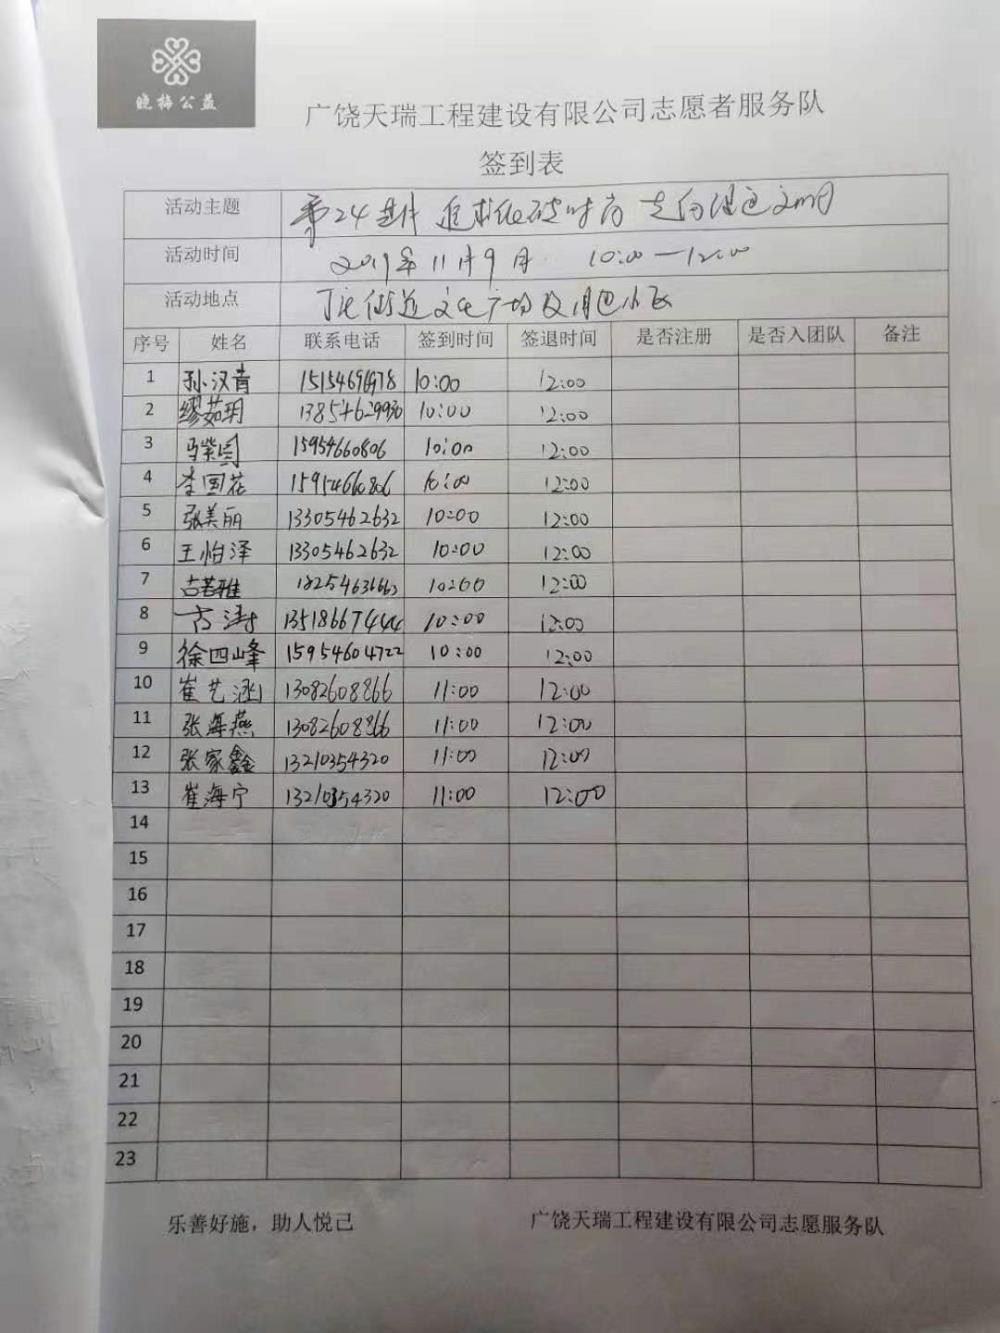 晓梅公益
广饶天瑞工程建设有限公司志愿者服务队
签到表
活动主题 第24 追求低碳时尚 走向绿色文明
活动时间 2019年11月9日 10:00—12:00
活动地点 丁庄街道文化广场及周边小区
序号 姓名 联系电话 签到时间 签退时间 是否注册 是否入团队 备注
1 孙汉青 15154696978 10:00 12:00
2 缪茹玥 13854629930 10:00 12:00
3 马紫图 15954660806 10:00 12:00
4 李国花 15954660806 10:00 12:00
5 张美丽 13305462632 10:00 12:00
6 王怡泽 13305462632 10:00 12:00
7 古若雅 10:00 12:00
8 古涛 13518667444 10:00 12:00
9 徐四峰 15954604722 10:00 12:00
10 崔艺涵 13082608866 11:00 12:00
11 张海燕 13082608866 11:00 12:00
12 张家鑫 13210354320 11:00 12:00
13 崔海宁 13210354320 11:00 12:00
14
15
16
17
18
19
20
21
22
23
乐善好施，助人悦己 广饶天瑞工程建设有限公司志愿服务队